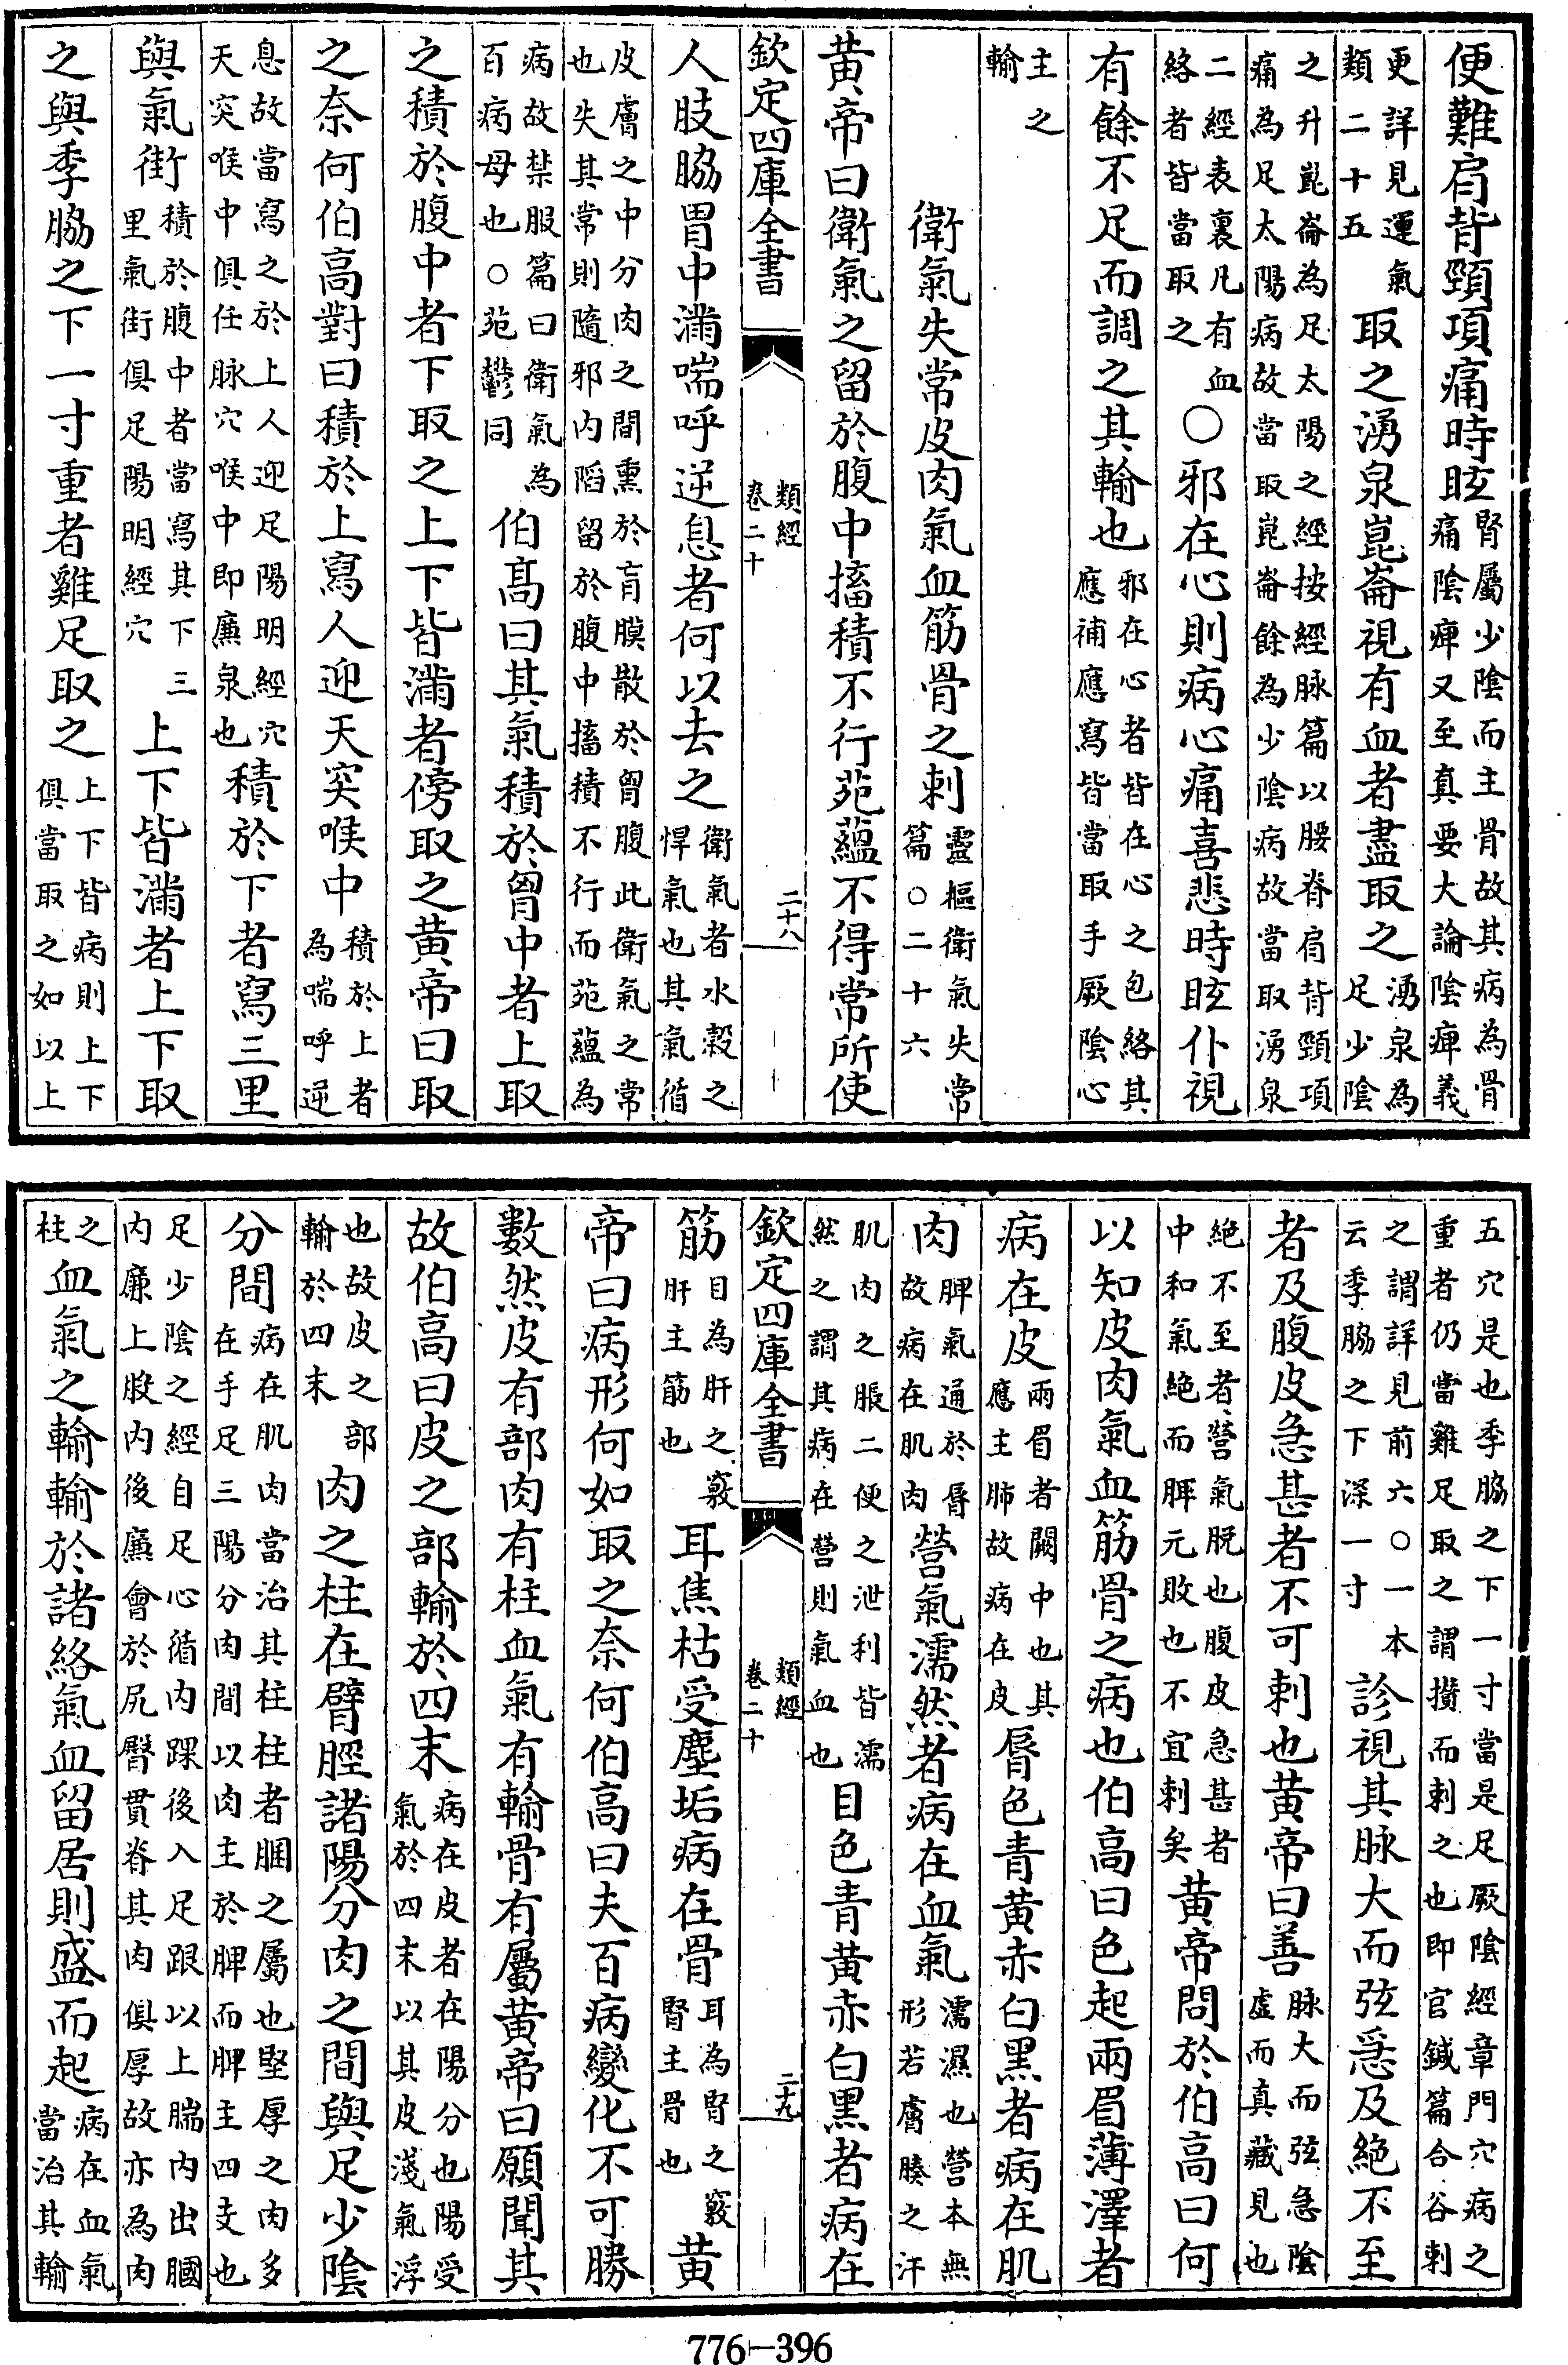 便難肩背頸項痛時眩腎屬少陰而主骨故其病為骨痛陰痺又至真要大論陰痺義
更詳見運氣類二十五取之湧泉崑崙視有血者盡取之湧泉為足少陰
之升崑崙為足太陽之經按經脉篇以腰脊肩背頸項痛為足太陽病故當取崑崙餘為少陰病故當取湧泉
二經表裏凡有血絡者皆當取之○邪在心則病心痛喜悲時眩仆視
有餘不足而調之其輸也邪在心者皆在心之包絡其應補應寫皆當取手厥陰心
主之輸
衛氣失常皮肉氣血筋骨之刺靈樞衛氣失常篇○二十六
黃帝曰衛氣之留於腹中搐積不行苑蘊不得常所使
欽定四庫全書 類經卷二十 二十八
人肢脇胃中滿喘呼逆息者何以去之衛氣者水穀之悍氣也其氣循
皮膚之中分肉之間熏於肓膜散於胷腹此衛氣之常也失其常則隨邪內䧟留於腹中搐積不行而苑蘊為
病故禁服篇曰衛氣為百病母也○苑鬱同伯高曰其氣積於胷中者上取
之積於腹中者下取之上下皆滿者傍取之黃帝曰取
之奈何伯高對曰積於上寫人迎天突喉中積於上者為喘呼逆
息故當寫之於上人迎足陽明經穴天突喉中俱任脉穴喉中即廉泉也積於下者寫三里
與氣街積於腹中者當寫其下三里氣街俱足陽明經穴上下皆滿者上下取
之與季脇之下一寸重者雞足取之上下皆病則上下俱當取之如以上
五穴是也季脇之下一寸當是足厥陰經章門穴病之重者仍當雞足取之謂攢而刺之也即官鍼篇合谷刺
之謂詳見前六○一本云季脇之下深一寸診視其脉大而弦急及絕不至
者及腹皮急甚者不可刺也黃帝曰善脉大而弦急陰虛而真藏見也
絕不至者營氣脫也腹皮急甚者中和氣絕而脾元敗也不宜刺矣黃帝問於伯高曰何
以知皮肉氣血筋骨之病也伯高曰色起兩眉薄澤者
病在皮兩眉者闕中也其應主肺故病在皮脣色青黃赤白黑者病在肌
肉脾氣通於脣故病在肌肉營氣濡然者病在血氣濡濕也營本無形若膚腠之汗
肌肉之脹二便之泄利皆濡然之謂其病在營則氣血也目色青黃赤白黑者病在
欽定四庫全書 類經卷二十 二十九
筋目為肝之竅肝主筋也耳焦枯受塵垢病在骨耳為腎之竅腎主骨也黃
帝曰病形何如取之奈何伯高曰夫百病變化不可勝
數然皮有部肉有柱血氣有輸骨有屬黃帝曰願聞其
故伯高曰皮之部輸於四末病在皮者在陽分也陽受氣於四末以其皮淺氣浮
也故皮之部輸於四末肉之柱在臂脛諸陽分肉之間與足少陰
分間病在肌肉當治其柱柱者䐃之屬也堅厚之肉多在手足三陽分肉間以肉主於脾而脾主四支也
足少陰之經自足心循內踝後入足跟以上腨內出膕內廉上股內後廉會於尻臀貫脊其肉俱厚故亦為肉
之柱血氣之輸輸於諸絡氣血留居則盛而起病在血氣當治其輸
776-396